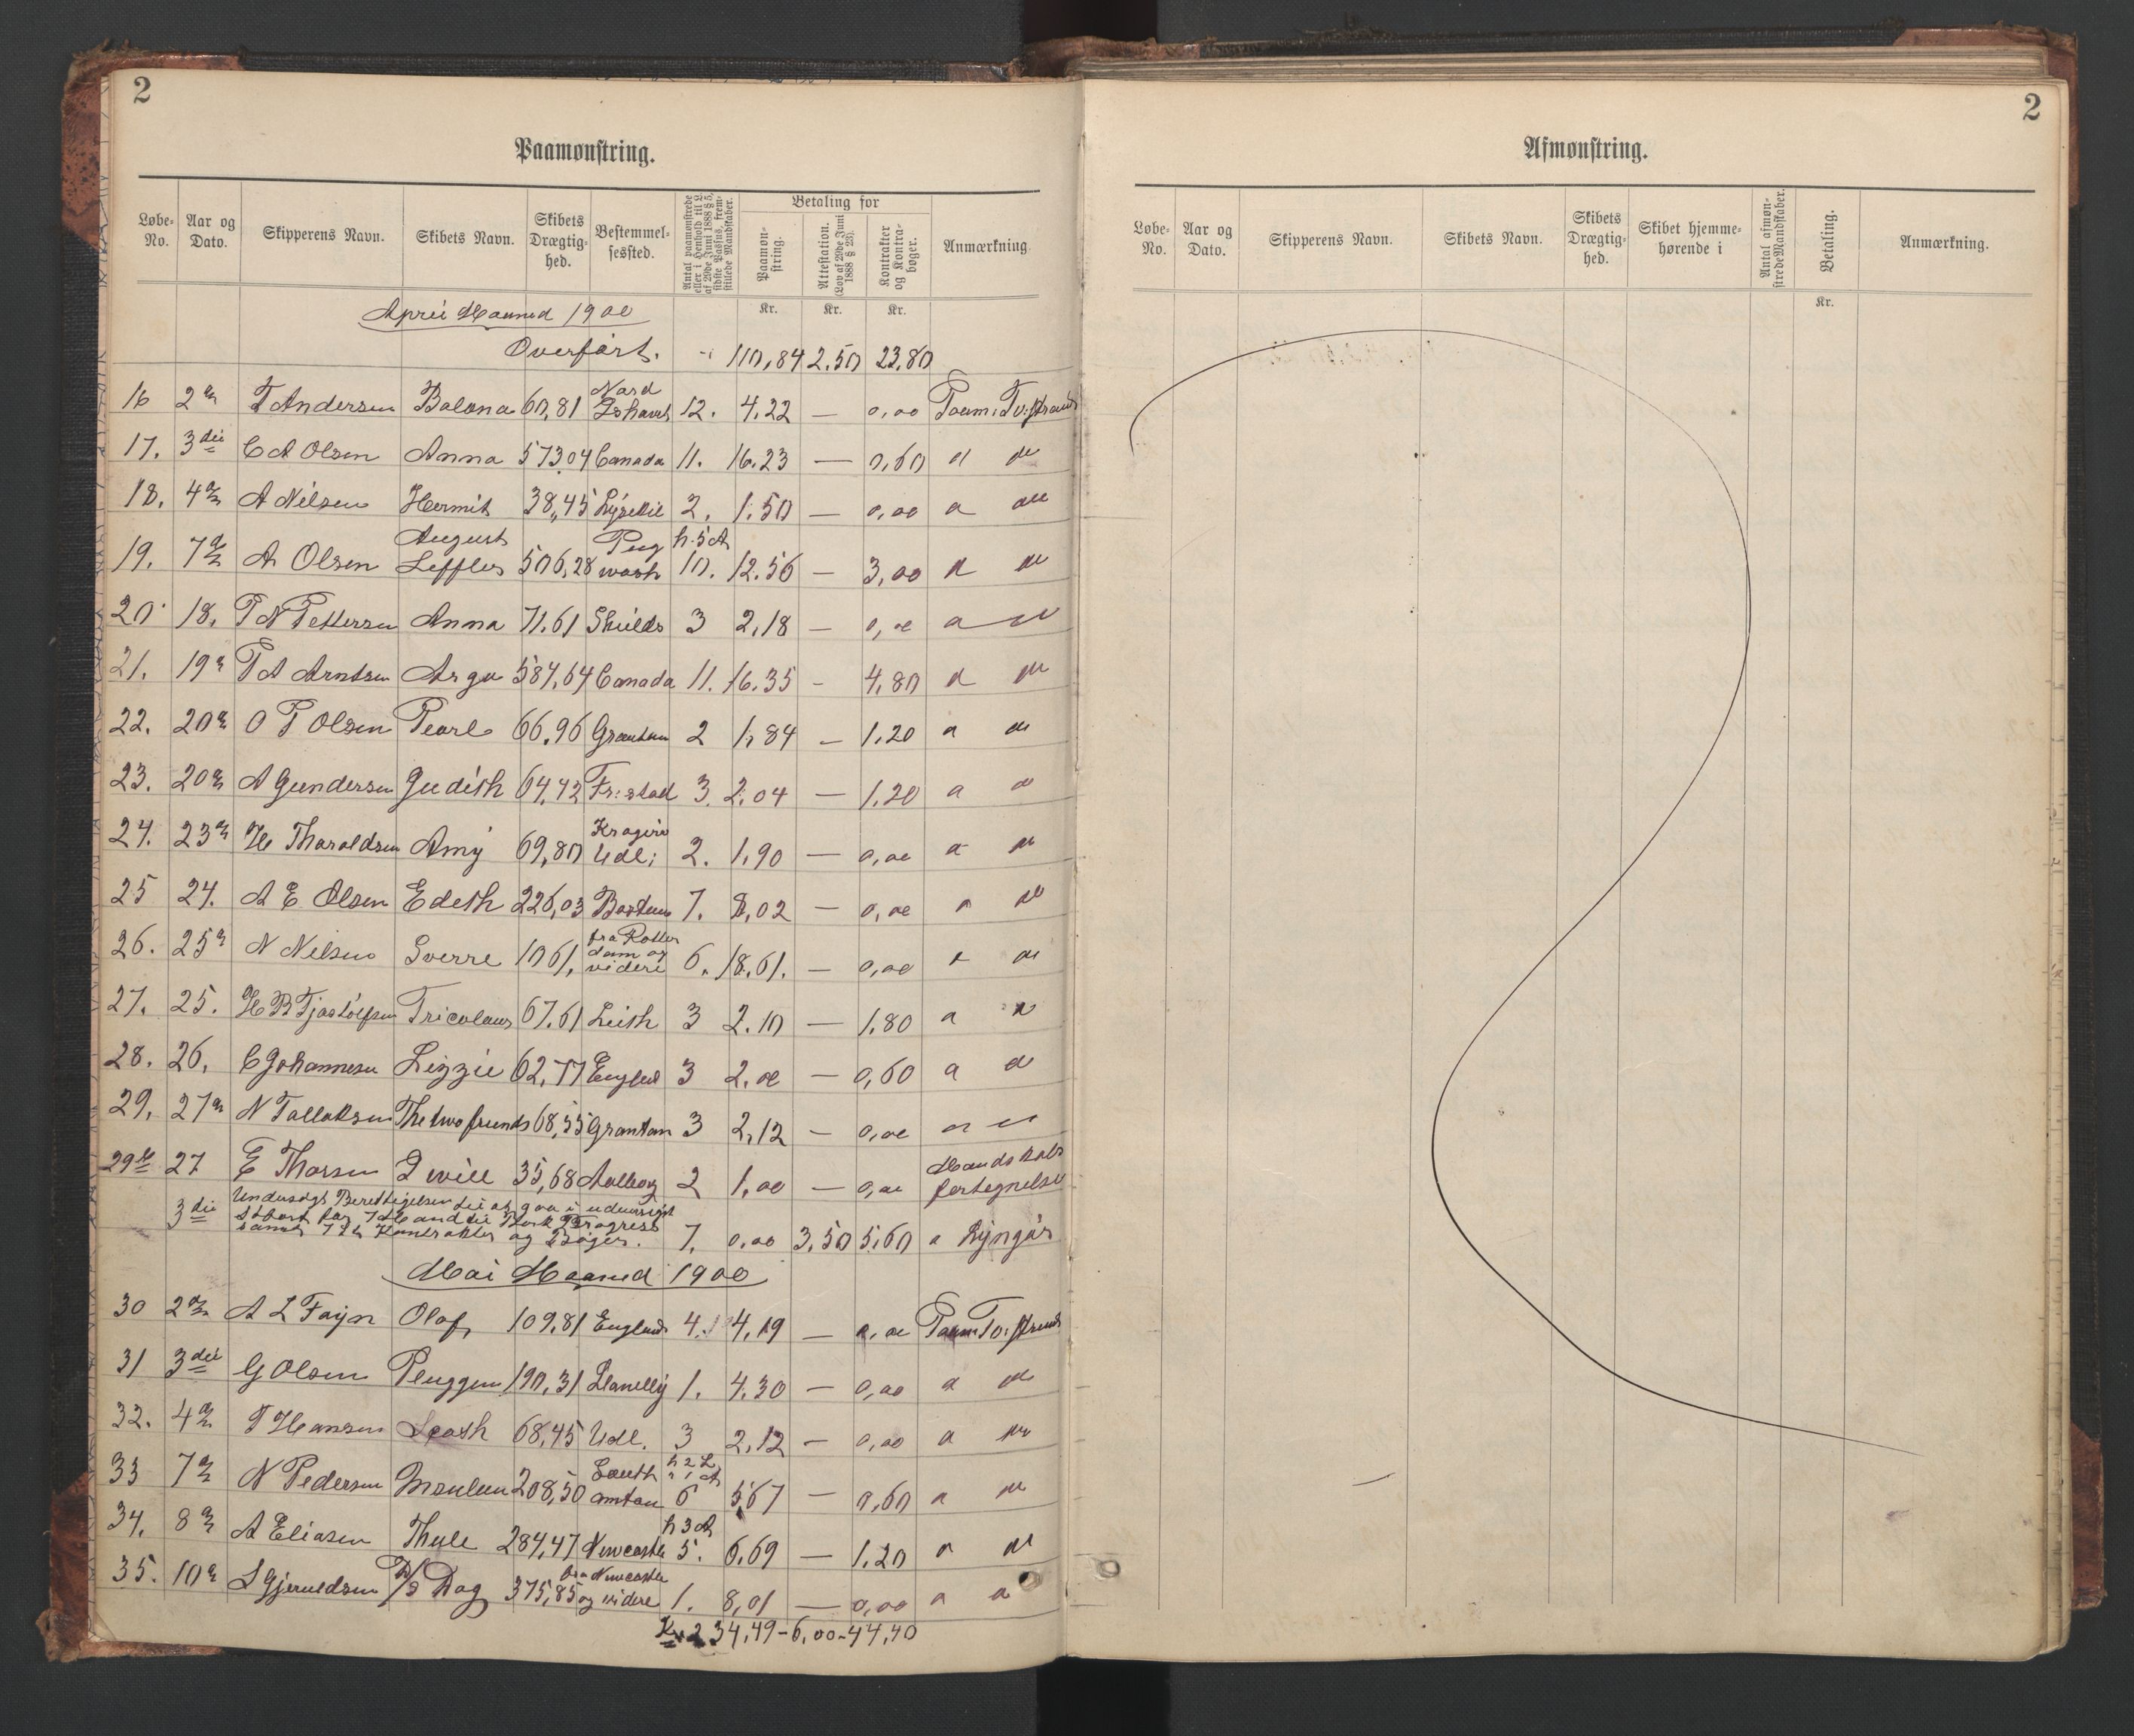 2
Paamønstring.
Løbe-No. Aar og Dato. Skipperens Navn. Skibets Navn. Skibets Drægtighed. Bestemmelsessted. Antal paamønstrede eller i Henhold til L. af 20de Juni 1888 § 5, sidste Passus, fremstillede Mandskaber. Betaling for Paamønstring. Attestation. (Lov af 20de Juni 1888 § 23). Kontrakter og Kontrabøger. Anmærkning
Kr. Kr. Kr.
April Maaned 1900
Overført. 110,84 2.50 23.80
16 2 T Andersen Balona 60,81 Nord Ishavet 12. 4.22 — 0,00 Paam: Tv:strand
17. 3die C A Olsen Anna 573.04 Canada 11. 16.23 — 0,60 "
18. 4 A Nilsen Hermit 38,45 Lysekil 2. 1.50 — 0,00 "
19. 7 A Olsen August Leffler 506,28 Pugwash h. 5 A 10. 12.56 — 3,00 "
20 18. P N Pettersen Anna 71.61 Shields 3 2,18 — 0,00 "
21. 19 T A Arntsen Argo 584,64 Canada 11. 16.35 - 4,80 "
22. 20 O T Olsen Pearl 66.96 Granton 2 1,84 — 1.20 "
23. 20 A Gundersen Judith 64,42 Fr:stad 3. 2.04 — 1.20 "
24. 23 H Tharaldsen Amy 69,80 Kragerø Udl; 2. 1,90 — 0,00 "
25 24. A E Olsen Edith 226,03 7. 8,02 — 0,00 "
26. 25 N Nilsen Sverre 1061, fra Rotterdam og videre 6. 18.61. — 0,00 "
27. 25. H B Tjostolfsen Tricolour 67.61 Leith 3 2.10 — 1.80 "
28. 26. C Johannesen Lizzie 62.77 Engled 3 2.00 — 0,60 "
29. 27 N Tallaksen The two friends 68,55 Granton 3 2,12 — 0,00 "
29 27 E Thorsen I will 35,68 Aalborg 2 1,00 — 0,00 Mandskabs fortegnelse
3die Undersøgt Berettigelsen til at gaa i udenrigst
Start for 7 Mand til Bark Progress
samt 7 Kontrakter og Bøger. 7. 0.00 3,50 5.60 " Lyngør
Mai Maaned 1900
30 2 A L Fayn Olaf 109.81 England 4. 4,19 — 0,00 Paam: Tv: strand
31 3die G Olsen 190,31 Llanelly 1. 4.30 — 0,00 "
32. 4 T Hansen 68,45 Udl. 3 2,12 — 0,00 "
33 7 N Pedersen 208,50 Southamton h 2 L " 1 A 6 5,67 — 0,60 "
34. 8 A Eliasen Thule 284,47 Newcastle h 3 A 5. 6.69 — 1.20 "
35. 10 L Gjeruldsen D/S Dag 375,85 fra Newcastle og videre 1. 8,01 — 0,00 "
Kr 234,49 - 6,00 - 44,40
2
Afmønstring.
Løbe-No. Aar og Dato. Skipperens Navn. Skibets Navn. Skibets Drægtighed. Skibet hjemmehørende i Antal afmønstrede Mandskaber. Betaling. Anmærkning.
Kr.